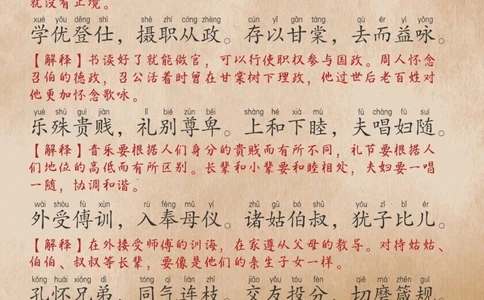 就没有止境。
xué yōu dēng shì　shè zhí cóng zhèng　cún yǐ gān táng　qù ér yì yǒng
学优登仕，摄职从政。存以甘棠，去而益咏。
【解释】书读好了就能做官，可以行使职权参与国政。周人怀念
召伯的德政，召公活着时曾在甘棠树下理政，他过世后老百姓对
他更加怀念歌咏。
yuè shū guì jiàn　lǐ bié zūn bēi　shàng hé xià mù　fū chàng fù suí
乐殊贵贱，礼别尊卑。上和下睦，夫唱妇随。
【解释】音乐要根据人们身分的贵贱而有所不同，礼节要根据人
们地位的高低而有所区别。长辈和小辈要和睦相处，夫妇要一唱
一随，协调和谐。
wài shòu fù xùn　rù fèng mǔ yí　zhū gū bó shū　yóu zǐ bǐ ér
外受傅训，入奉母仪。诸姑伯叔，犹子比儿。
【解释】在外接受师傅的训诲，在家遵从父母的教导。对待姑姑、
伯伯、叔叔等长辈，要像是他们的亲生子女一样。
kǒng huái xiōng dì　tóng qì lián zhī　jiāo yǒu tóu fèn　qiē mó zhēn guī
孔怀兄弟，同气连枝。交友投分，切磨箴规。